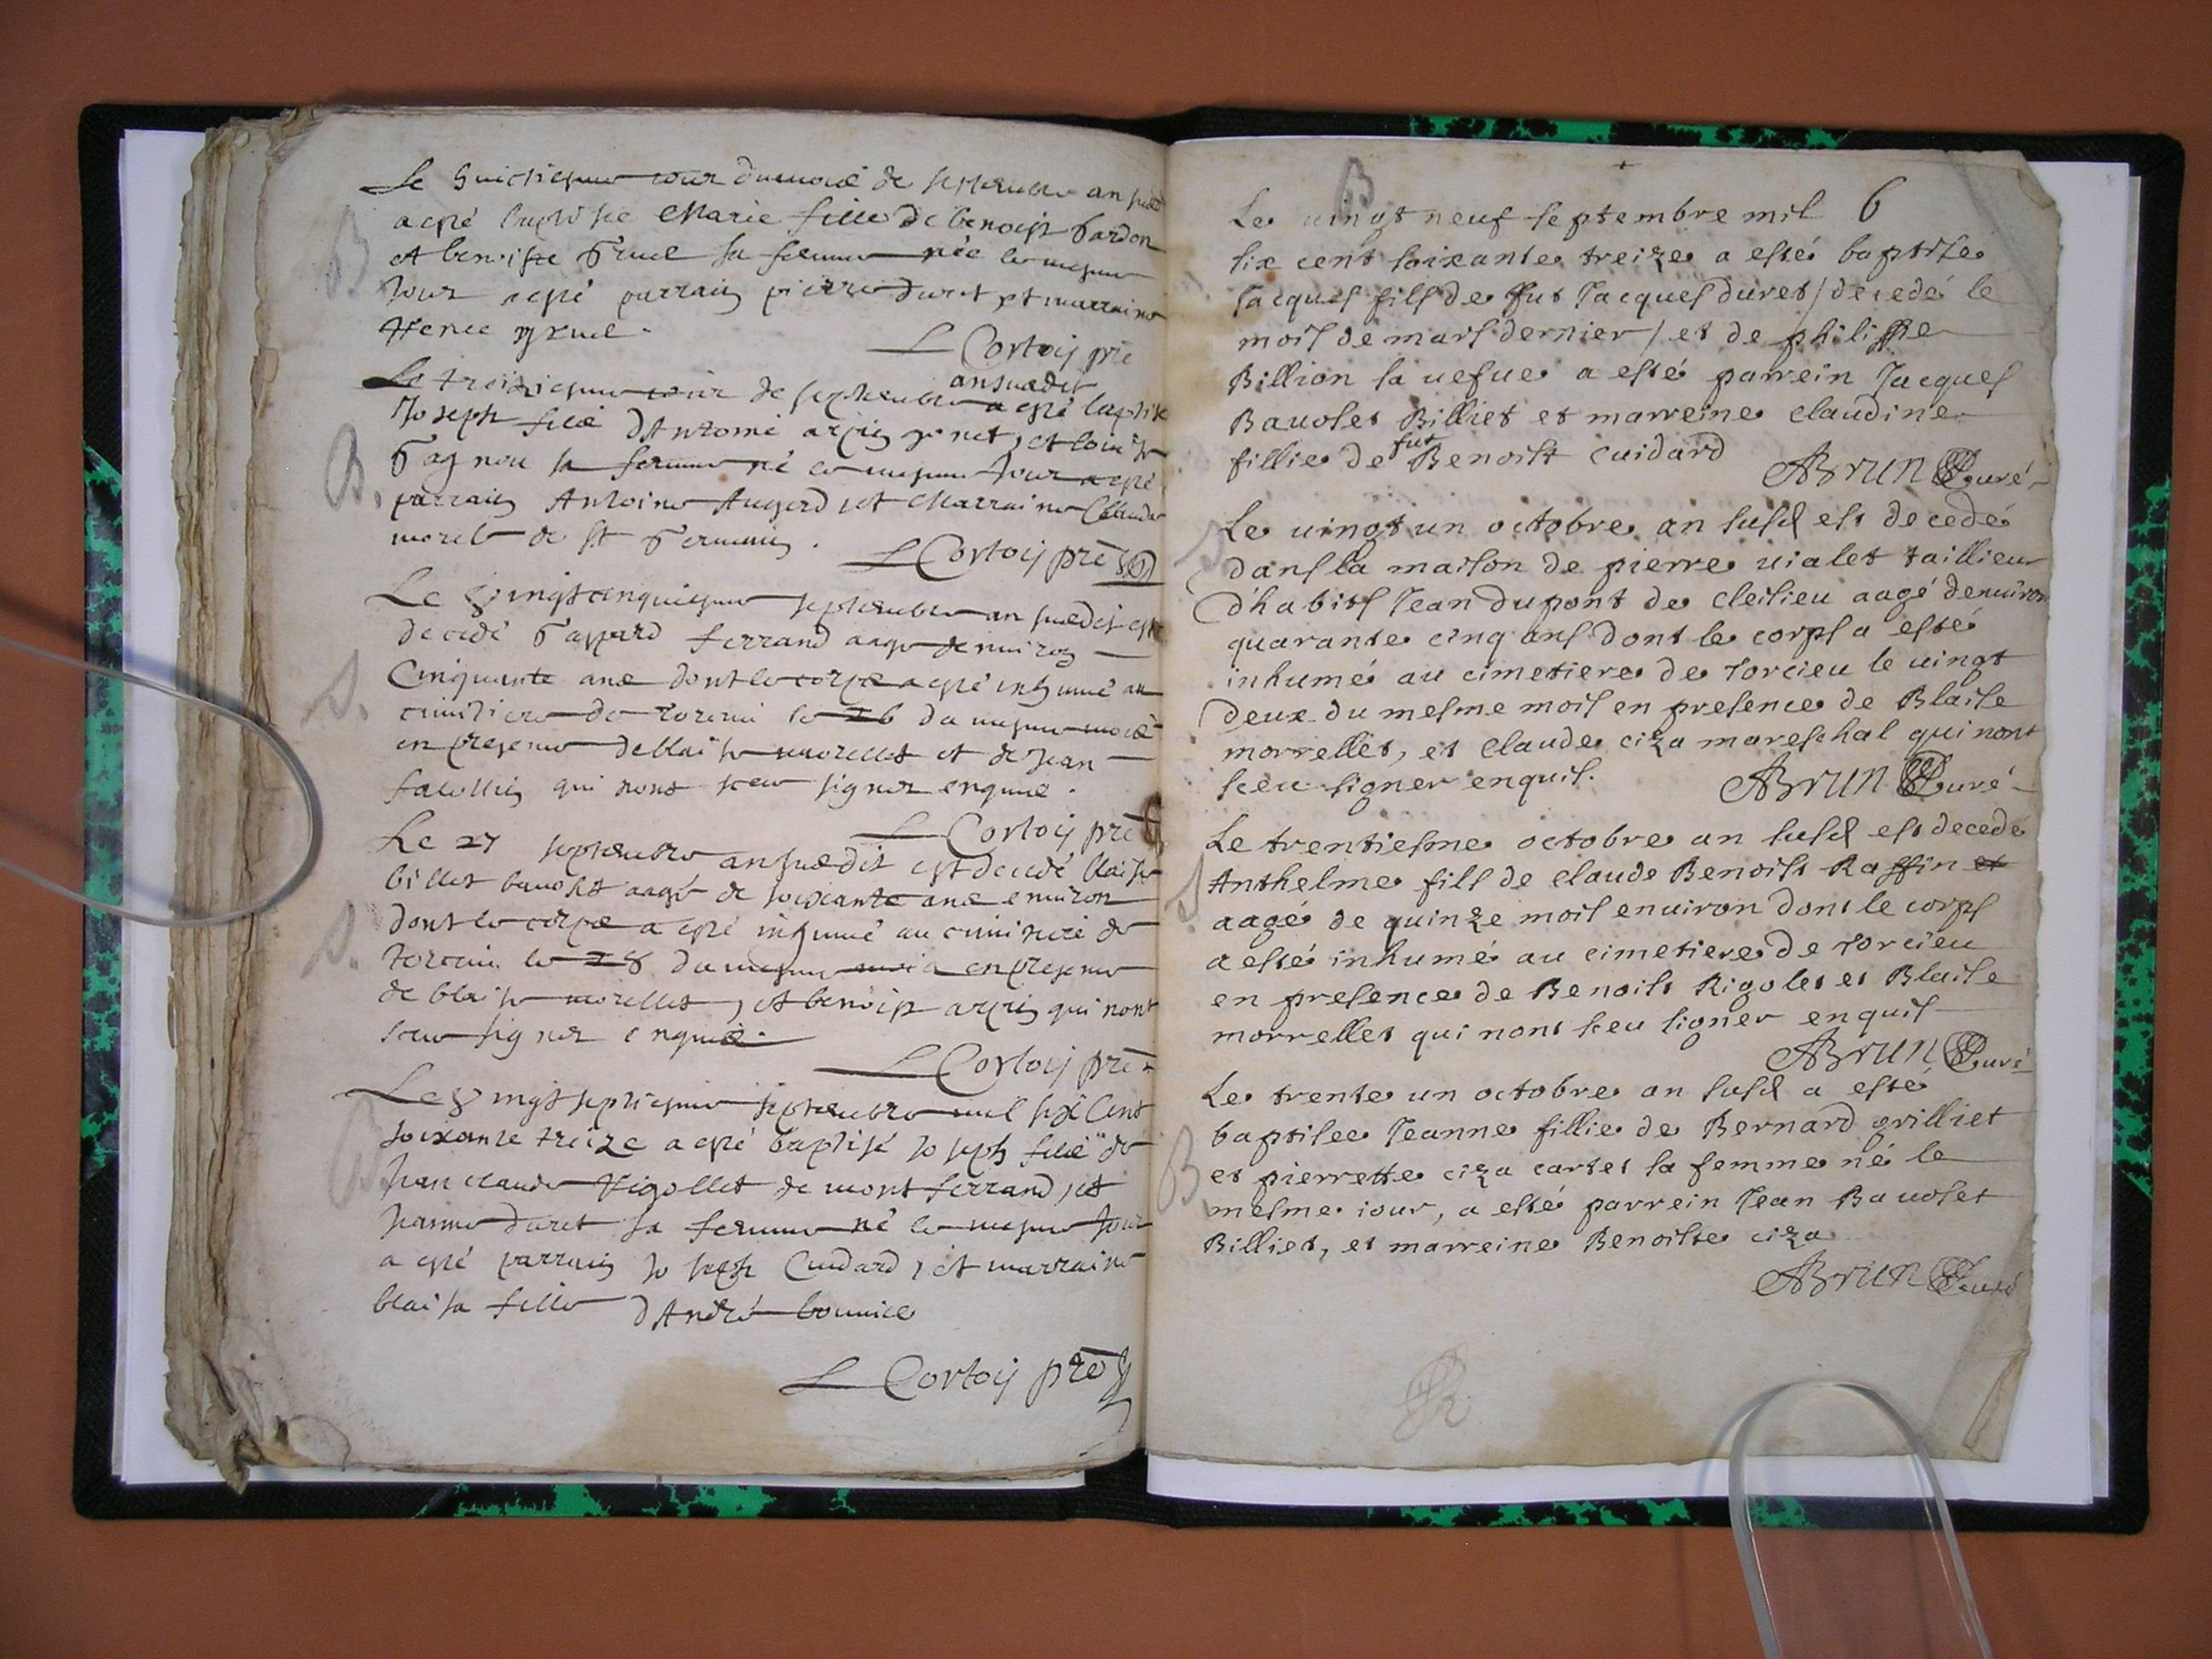 B
Le huictiesme iour du mois de septembre an susd
a esté baptisée Marie fille de benoist Gardon
et benoiste Gruel sa femme née le mesme
Jour a esté parrain pierre Duret et marraine
L Cortoij prê
ansusdit
Le treiziesme iour de septembre a esté baptisé
B.
Joseph filz dAntoine arpin et
Gagnou sa femme né le mesme Jour a esté
parrain Antoine Augerd, et Marraine Claude
morel de St Germain.
L Cortoij prê
Le Vingtcinquiesme septembre an susdit est
decedé Gaspard ferrand aagé denuiron
S.
Cinquante ans dont le corps a esté inhumé au
cimitiere de torcieu le 26 du mesme mois
en presence de blaise morellet et de Jean
qui nont sceu signer enquis.
L Cortoij prê
Le 27 septembre ansusdit est decedé blaise
billet bauolet aagé de soixante ans enuiron
S.
dont le corps a esté inhumé au cimitiere de
torcieu le 28 du mesme mois en presence
de blaise morellet, et benoist arpin qui nont
sceu signer enquis.
L Cortoij prê
Le Vingtseptiesme septembre mil six Cent
B.
soixante treize a esté baptisé Joseph filz de
Jean claude Rigollet de montferrand, et
Jeanne duret sa femme né le mesme Jour
a esté parrain Joseph Cuidard, et marraine
blaisa fille dAndré bonnice
L Cortoij prê
B
6
Le uingt neuf septembre mil
six cent soixante treize a esté baptisé
Jacques fils de fut Jacques duret / decedé le
mois de mars dernier / et de philippe
Billion sa uefue a esté parrein Jacques
Bauolet Billiet et marreine claudine
fut
fillie de Benoist cuidard
ABrun Curé
S
Le uingt un octobre an susd est decedé
dans la maison de pierre uialet taillieur
d'habits Jean dupont de cleisieu aagé denuiron
quarante cinq ans dont le corps a esté
inhumé au cimetiere de torcieu le uingt
deux du mesme mois en presence de Blaise
morrellet, et claude ciza mareschal qui nont
sceu signer enquis.
ABrun Curé
Le trentiesme octobre an susd est decedé
S
Anthelme fils de claude Benoist Raffin et
aagé de quinze mois enuiron dont le corps
a esté inhumé au cimetiere de torcieu
en presence de Benoist Rigolet et Blaise
morrellet qui nont sceu signer enquis
ABrun Curé
Le trente un octobre an susd a esté
B
baptisee Jeanne fillie de Bernard grilliet
et pierrette ciza cartet sa femme né le
mesme iour, a esté parrein Jean Bauolet
Billiet, et marreine Benoiste ciza
ABrun Curé